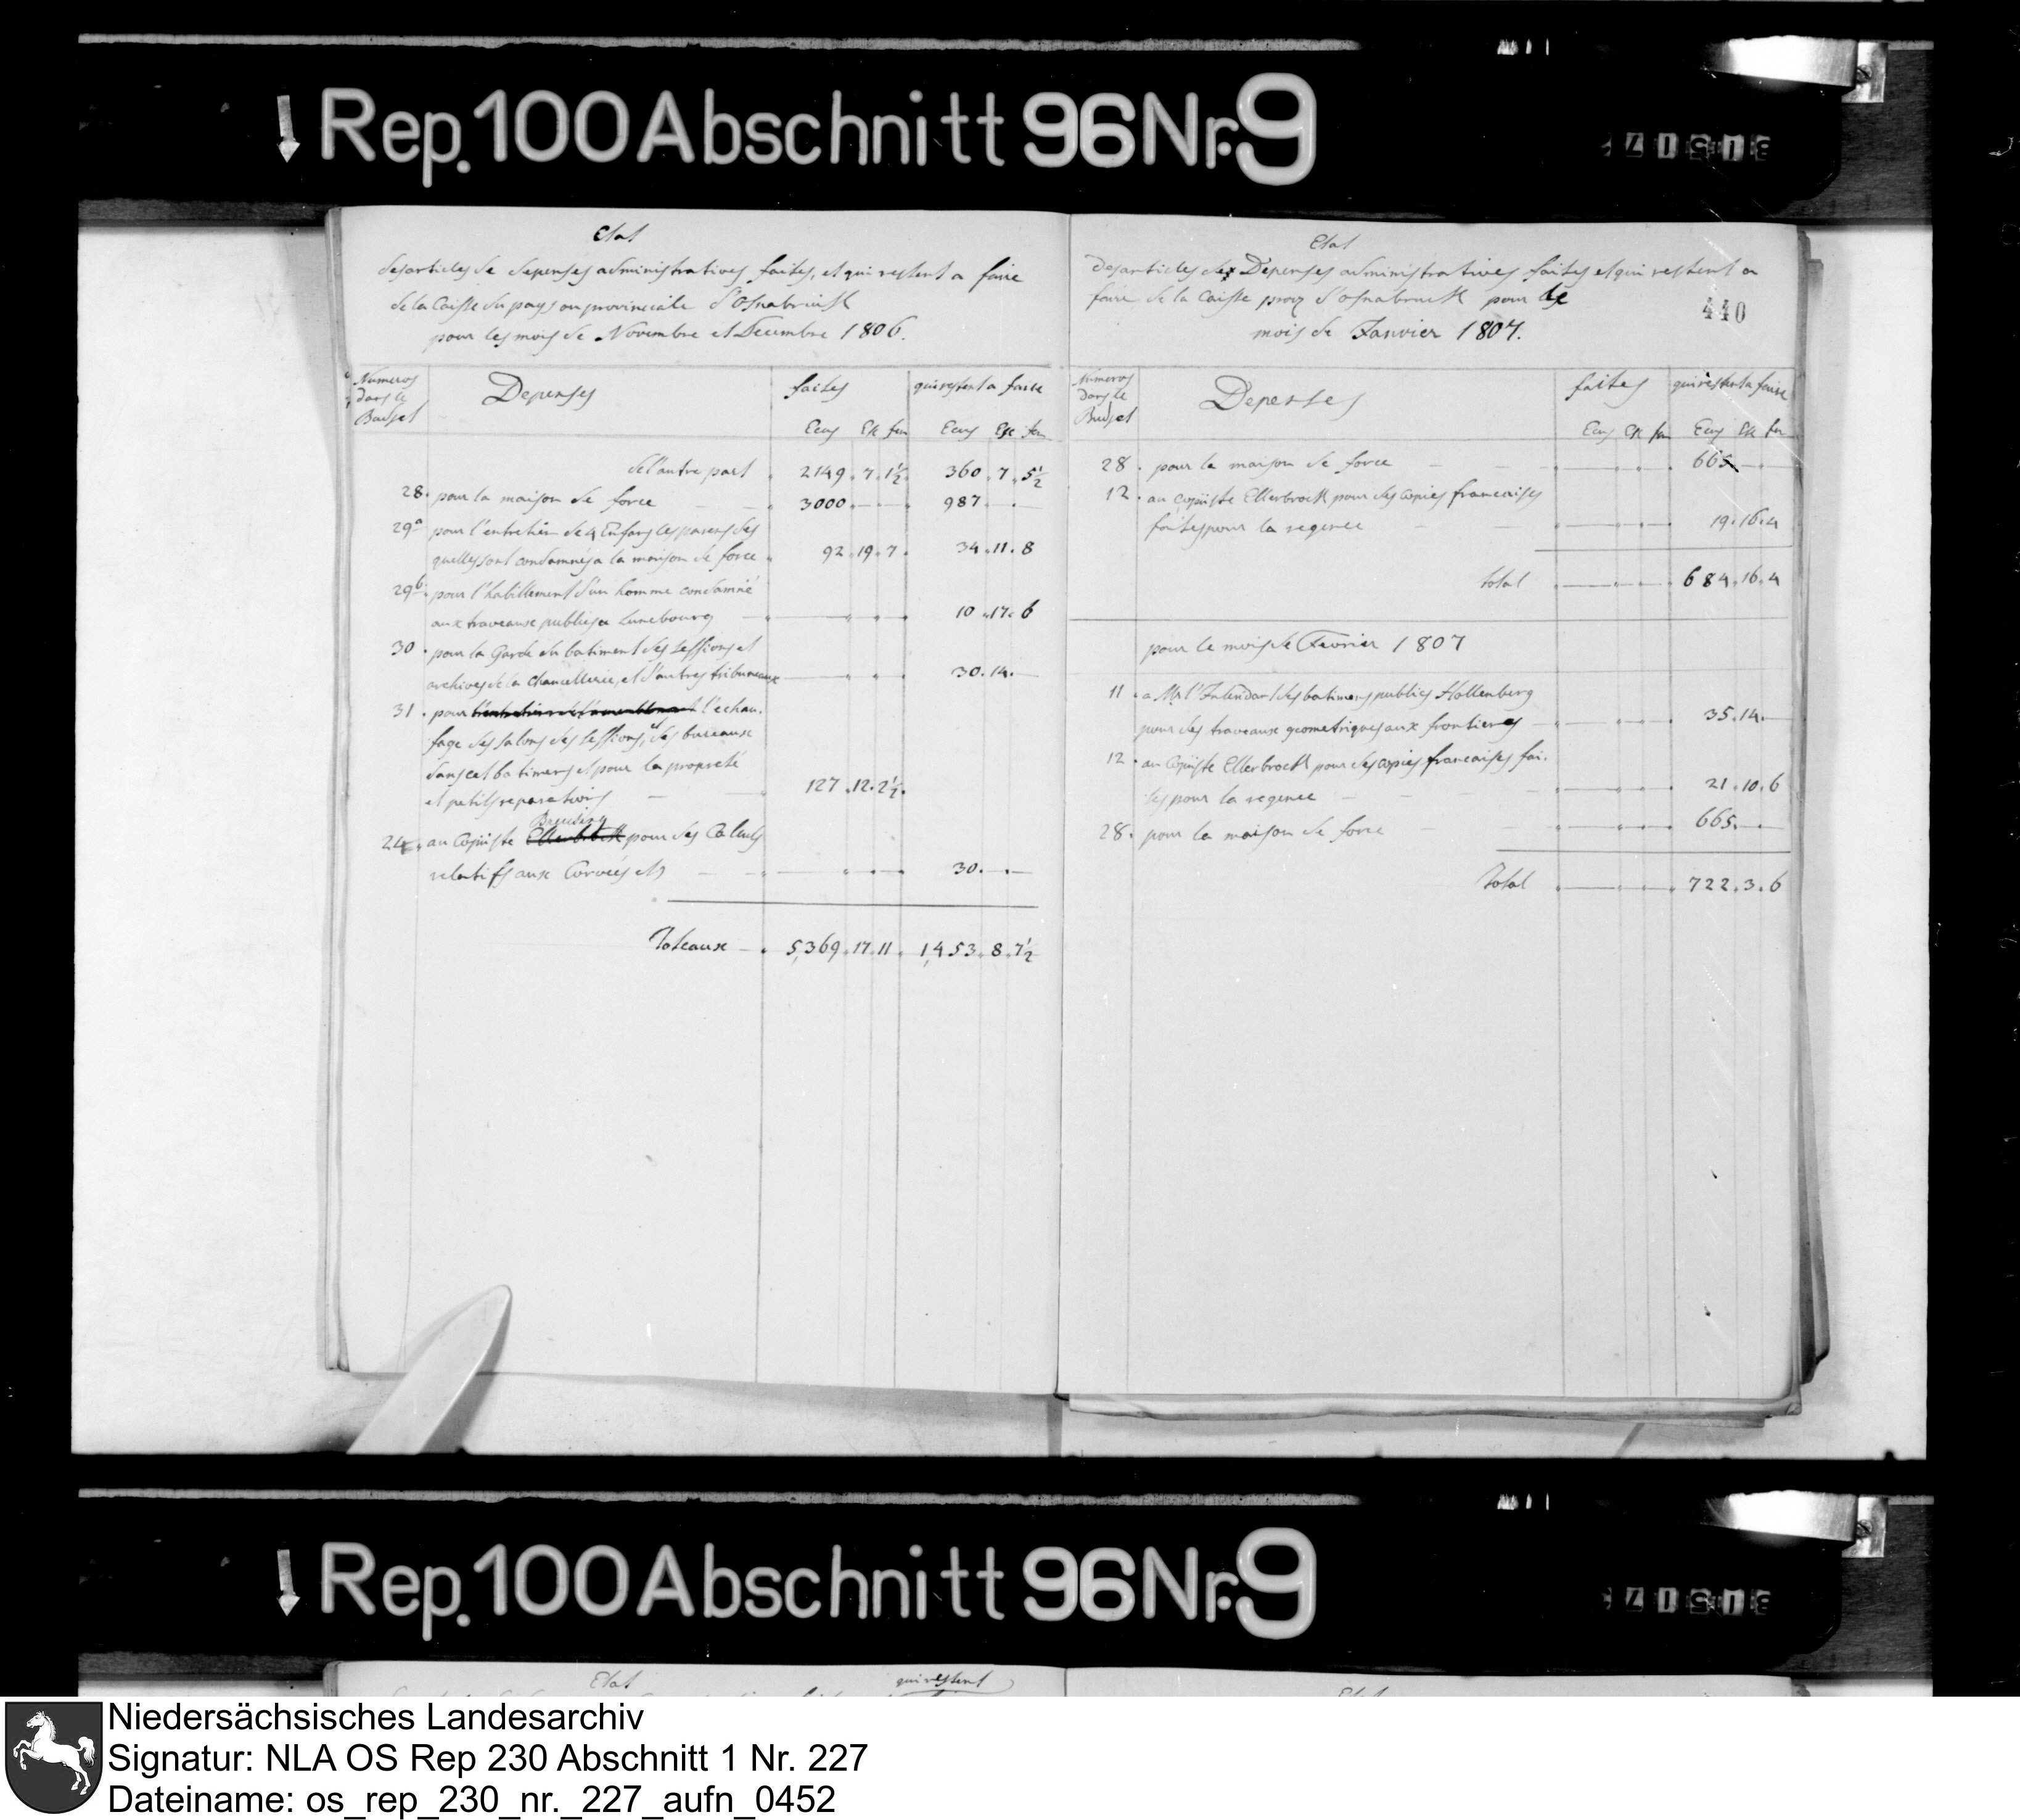 Rep. 100 Abschnitt 96 Nr. 9
Etat
des articles de depenses administratives faites, et qui restent a faire
de la Caisse du pays ou provinciale d'Osnabruck
pour les mois de Novembre et Decembre 1806.
Numeros dans le Budget Depenses faites qui restent a faire
Ecus Esc fen Ecus Esc fen
de l'autre part 2149. 7. 1½ 360. 7. 5½
28. pour la maison de force 3000. — . — 987. — . —
29a pour l'entretien de 4 Enfans les parens des
quelles sont condamnés a la maison de force 92. 19. 7. 34. 11. 8
29b. pour l'habillement d'un homme condamné
aux traveaux publics a Lunebourg — 10. 17. 6
30. pour la Garde du batiment des sessions et
archives de la Chancellerie, et d'autres tribuneaux — 30. 14. —
31. pour l'echau-
fage des salons des sessions, et des bureaux
dans cet batimens et pour la propreté
et petits reparations — 127. 12. 2½.
24. au Copiiste Ellerbrock pour des Calculs
relatifs aux Corvées etc — 30. — . —
Toteaux — 5,369. 17. 11. 1,453. 8. 7½
Etat
Des articles des Depenses administratives faites et qui restent a
faire de la Caisse prov d'Osnabruck pour le
440
mois de Janvier 1807.
Numeros dans le Budget Depenses faites qui restent a faire
Ecus Esc fen Ecus Esc fen
28. pour la maison de force — 665. —
12. au copiiste Ellerbrock pour des copies francaises
faites pour la regence — 19. 16. 4
total — 684. 16. 4
pour le mois de Fevrier 1807
11. a Mr l'Intendant des batimens publics Hollenberg
pour des traveaux geometriques aux frontieres — 35. 14. —
12. au Copiiste Ellerbrock pour des copies francaises fai-
tes pour la regence — 21. 10. 6
28. pour la maison de force — 665. — . —
Total — 722. 3. 6
Rep. 100 Abschnitt 96 Nr. 9
Etat qui restent
Etat
Niedersächsisches Landesarchiv
Signatur: NLA OS Rep 230 Abschnitt 1 Nr. 227
Dateiname: os_rep_230_nr._227_aufn_0452